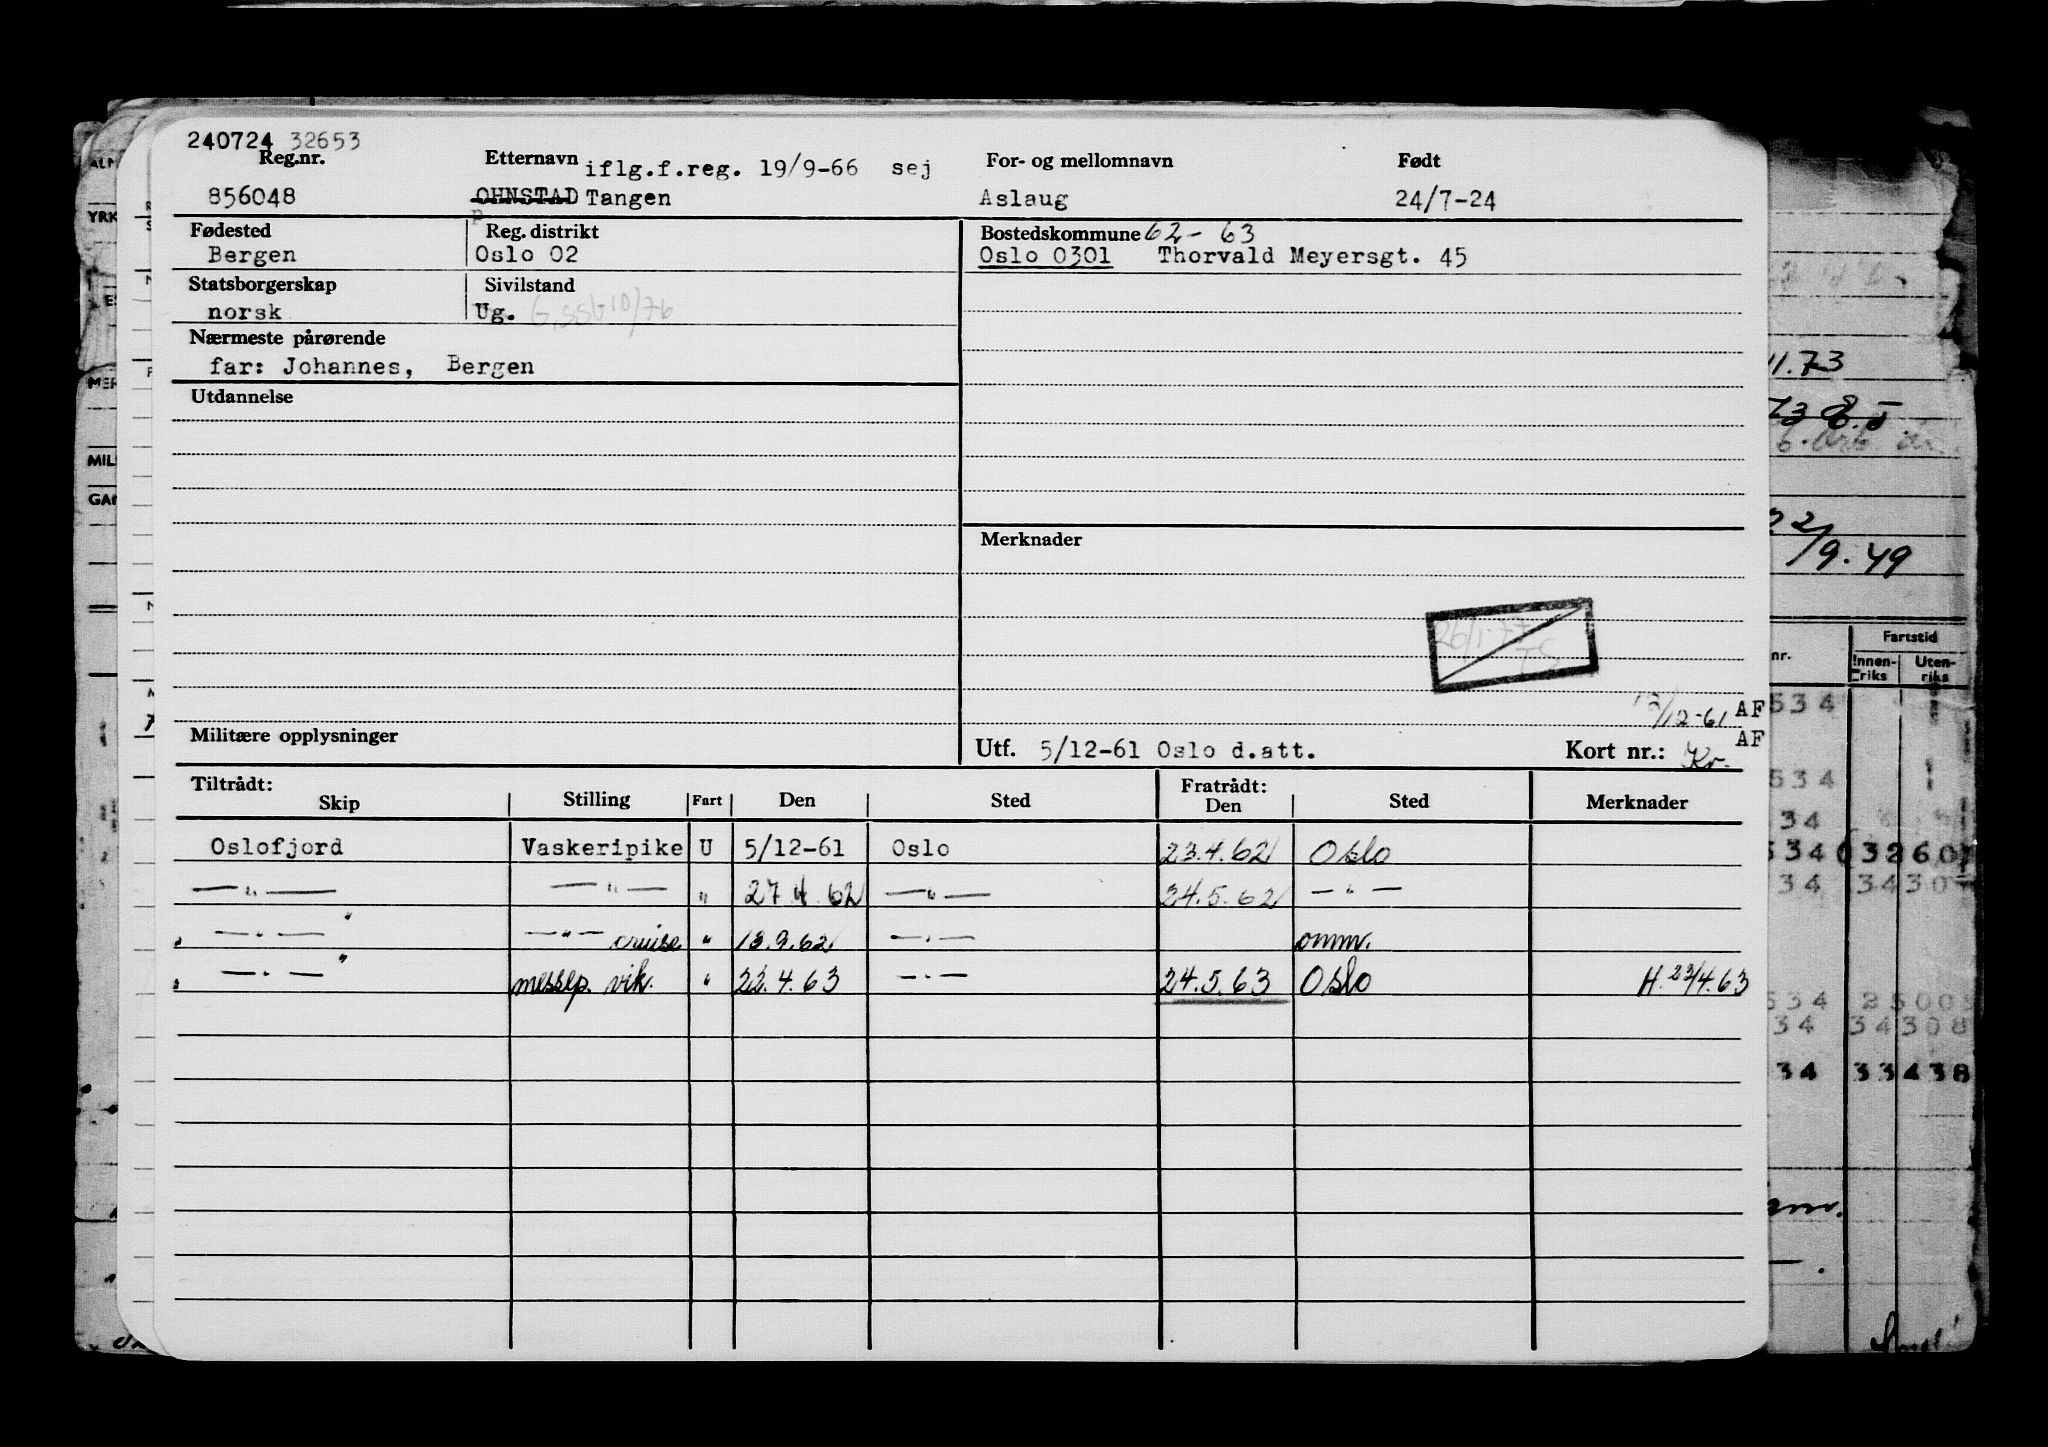 240724 32653
Reg.nr. Etternavn iflg.f.reg. 19/9-66 sej For- og mellomnavn Født
856048 OHNSTAD Tangen Aslaug 24/7-24
Fødested Reg. distrikt Bostedskommune 62- 63
Bergen Oslo 02 Oslo 0301 Thorvald Meyersgt. 45
Statsborgerskap Sivilstand
norsk Ug.
Nærmeste pårørende
far: Johannes, Bergen
Utdannelse
Merknader
12/12-61 AF
Militære opplysninger Utf. 5/12-61 Oslo d.att. Kort nr.: Kr. AF
Tiltrådt: Fratrådt:
Skip Stilling Fart Den Sted Den Sted Merknader
Oslofjord Vaskeripike U 5/12-61 Oslo 23.4.62 Oslo
—"— —"— " 27.4.62 —"— 24.5.62 —"—
" —"— " —"— cruise " 13.9.62 —"— omm.
" —"— " messep. vik. " 22.4.63 —"— 24.5.63 Oslo H.23/4.63
11.73
22/9.49
nr. Fartstid
Innen-riks Uten-riks
534
534
34
34 34308
34 33438